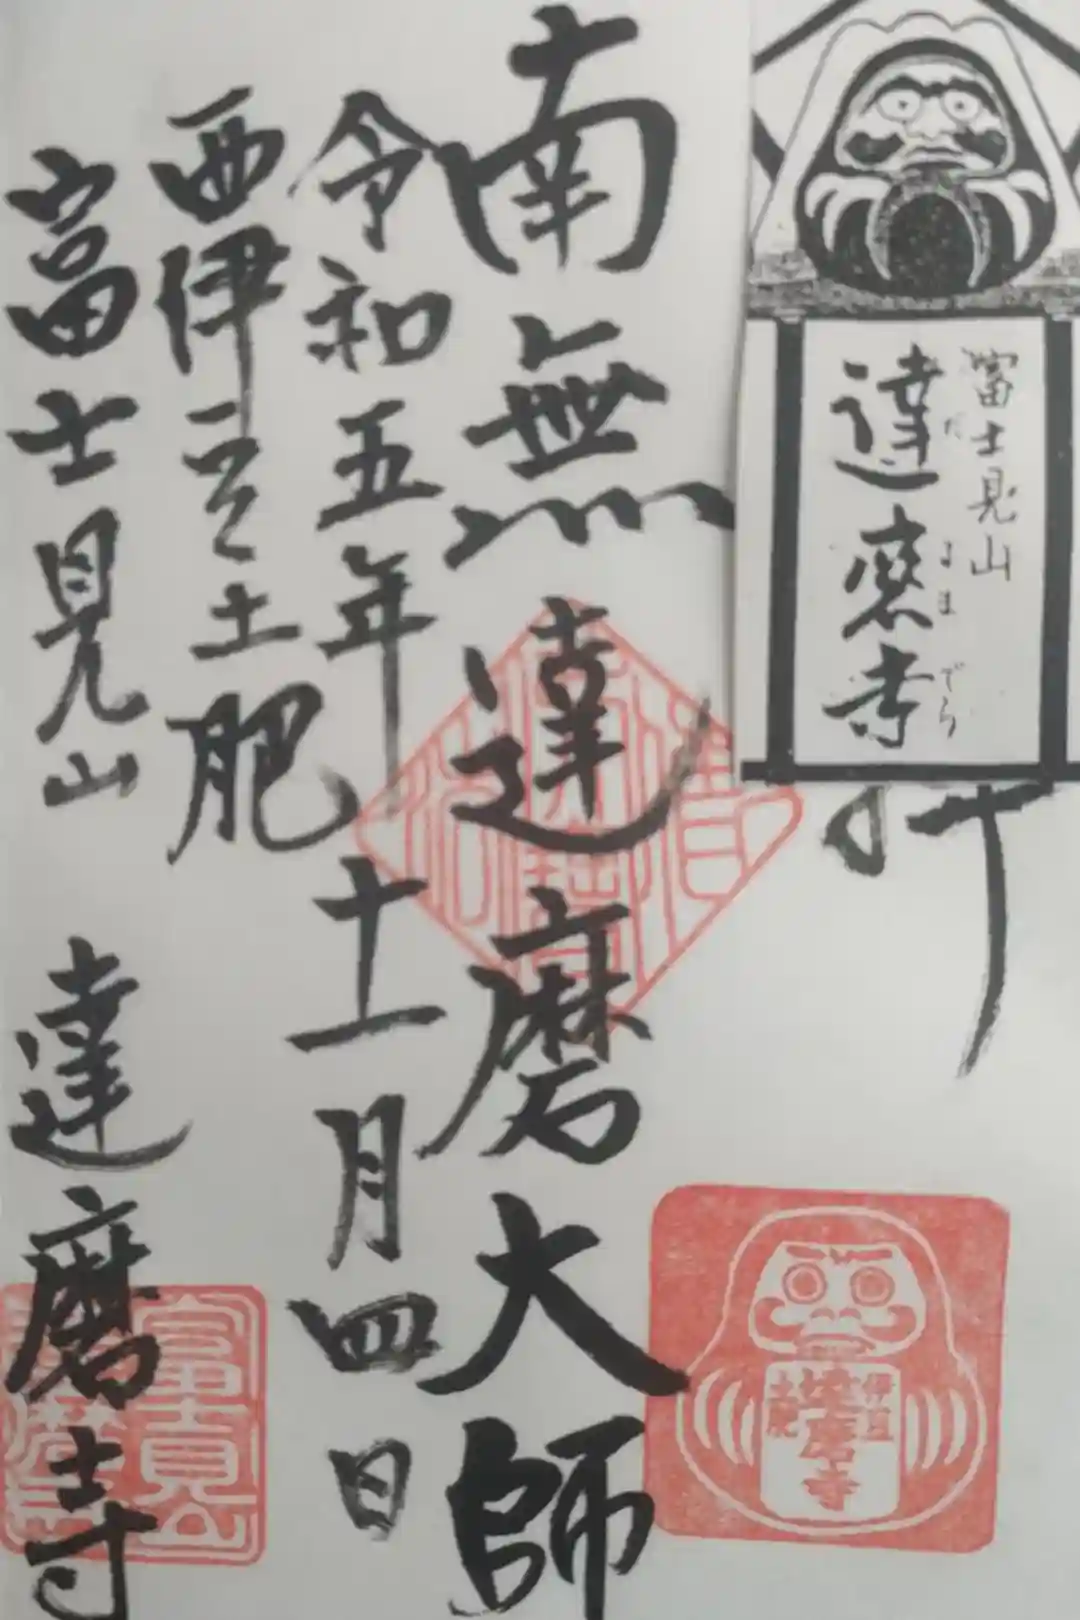 富士見山
達磨寺
だ
るま
でら
拝
南無達磨大師
令和五年十一月四日
西伊豆土肥
富士見山 達磨寺
伊豆
達磨寺
土肥
富士見山